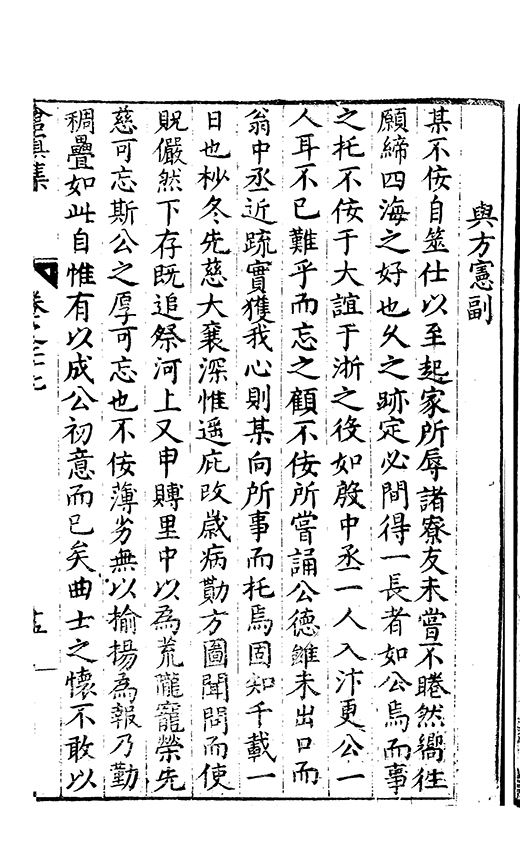 與方憲副
某不佞自筮仕以至起家所辱諸寮友未嘗不睠然嚮往
願締四海之好也久之跡定必間得一長者如公焉而事
之托不佞于大誼于浙之役如殷中丞一人入汴更公一
人耳不已難乎而忘之顧不佞所嘗誦公德雖未出口而
翁中丞近疏實獲我心則某向所事而托焉固知千載一
日也杪冬先慈大襄深惟遥庇改歲病勩方圖聞問而使
貺儼然下存既追祭河上又申賻里中以為荒隴寵榮先
慈可忘斯公之厚可忘也不佞薄劣無以揄揚為報乃勤
稠疊如此自惟有以成公初意而已矣曲士之懷不敢以
滄溟集 卷之二十七